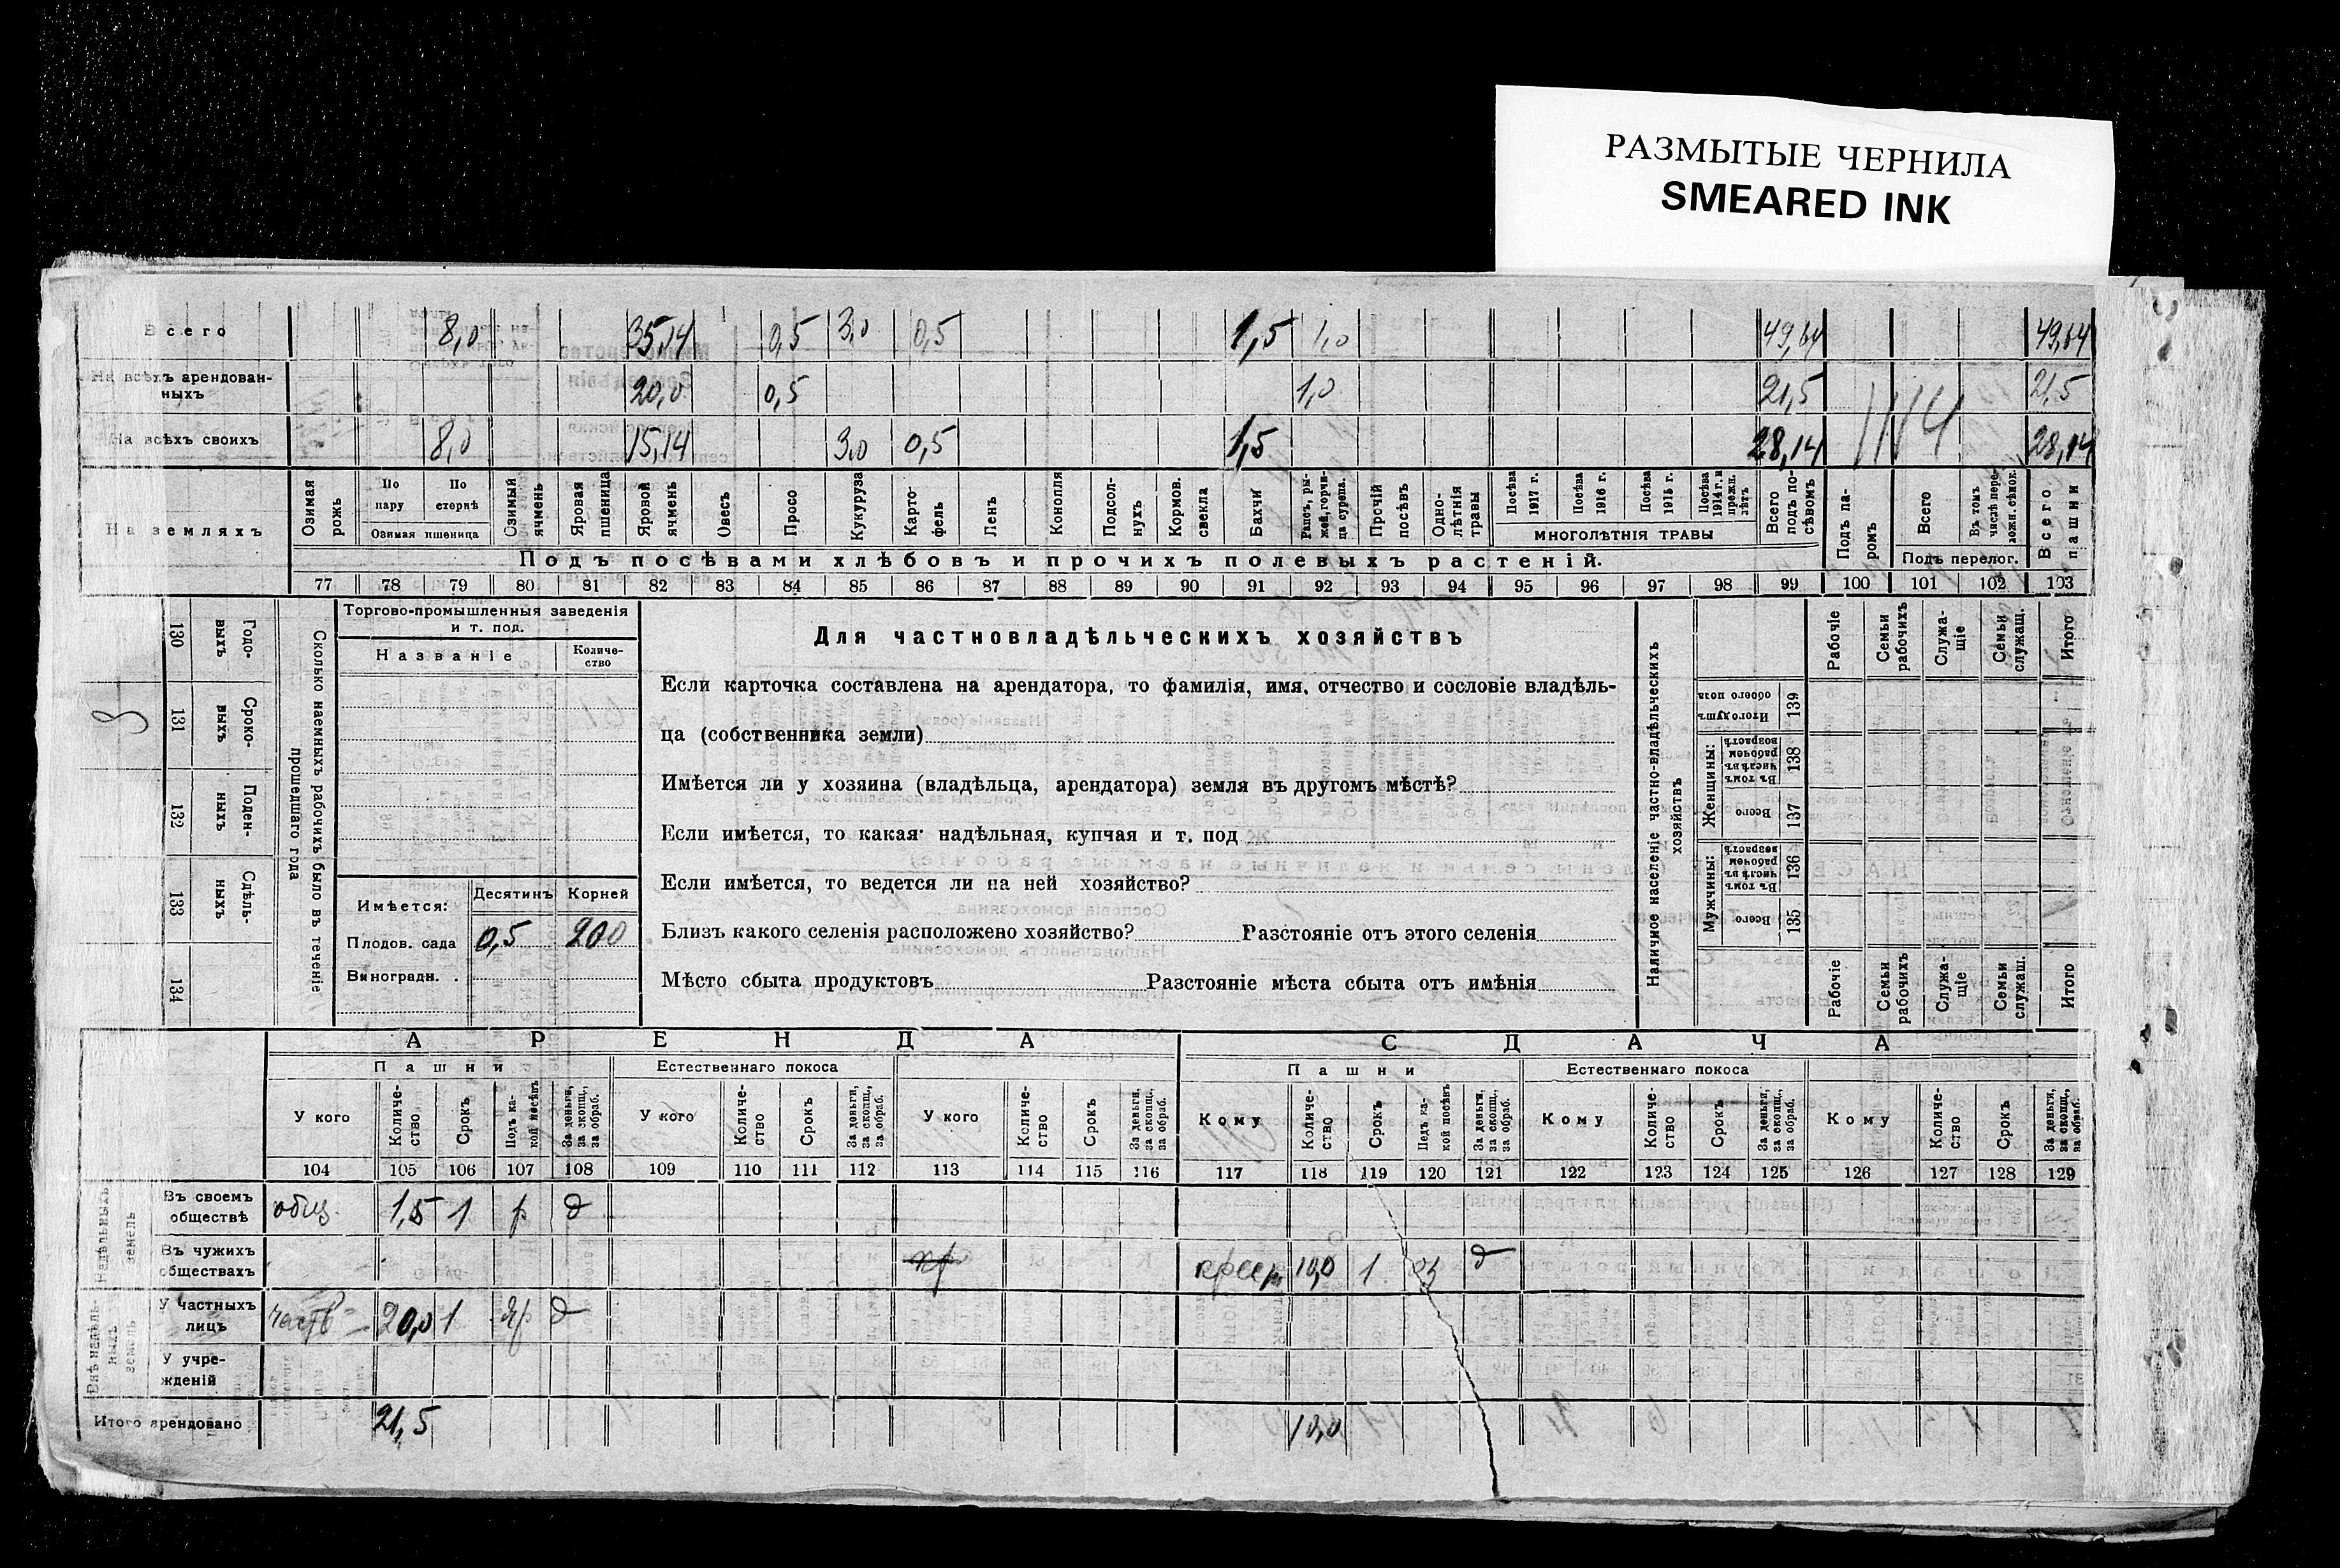 РАЗМЫТЫЕ ЧЕРНИЛА
SMEARED INK
Всего 8,0 35,14 0,5 3,0 0,5 1,5 1,0 49,64 49,64
На всѣхъ арендован-
ныхъ 20,0 0,5 1,0 21,5 21,5
На всѣхъ своихъ 8,0 15,14 3,0 0,5 1,5 28,14 28,14
На земляхъ
Озимая рожь
По пару
По стернѣ
Озимая пшеница
Озимый ячмень
Яровая пшеница
Яровой ячмень
Овесъ
Просо
Кукуруза
Карто-
фель
Ленъ
Конопля
Подсол-
нухъ
Кормов. свекла
Бахчи
Рапсъ, ры-
жей, горчи-
ца сурепа.
Прочій посѣвъ
Одно-
лѣтнія травы
Посѣва 1917 г.
Посѣва 1916 г.
Посѣва 1915 г.
Посѣва 1914 г. и прежн. лѣтъ
МНОГОЛѢТНІЯ ТРАВЫ
Всего подъ по-
сѣвомъ
Подъ па-
ромъ
Всего
Въ томъ числѣ пере-
ложн. сѣнок.
Подъ перелог.
Всего пашни
Подъ посѣвами хлѣбовъ и прочихъ полевыхъ растеній.
77 78 79 80 81 82 83 84 85 86 87 88 89 90 91 92 93 94 95 96 97 98 99 100 101 102 103
130 Годо-
выхъ
131 Сроко-
выхъ
132 Поден-
ныхъ
133 Сдѣль-
ныхъ
134
Сколько наемныхъ рабочихъ было въ теченіе
прошедшаго года
Торгово-промышленныя заведенія
и т. под.
Названіе
Количе-
ство
Имѣется:
Десятинъ
Корней
Плодов. сада 0,5 200
Виноградн. .
Для частновладѣльческихъ хозяйствъ
Если карточка составлена на арендатора, то фамилія, имя, отчество и сословіе владѣль-
ца (собственника земли)
Имѣется ли у хозяина (владѣльца, арендатора) земля въ другомъ мѣстѣ?
Если имѣется, то какая: надѣльная, купчая и т. под
Если имѣется, то ведется ли на ней хозяйство?
Близъ какого селенія расположено хозяйство? Разстояніе отъ этого селенія
Мѣсто сбыта продуктовъ Разстояніе мѣста сбыта отъ имѣнія
Наличное населеніе частно-владѣльческихъ
хозяйствъ
Рабочіе
Семьи рабочихъ
Служа-
щіе
Семьи служащ.
Итого
Итого душъ обоего пола 139
Женщины:
Въ томъ числѣ въ рабочемъ возрастѣ 138
Всего 137
Мужчины:
Въ томъ числѣ въ рабочемъ возрастѣ 136
Всего 135
Рабочіе
Семьи рабочихъ
Служа-
щіе
Семьи служащ.
Итого
АРЕНДА
СДАЧА
Пашни
Естественнаго покоса
Пашни
Естественнаго покоса
У кого
Количе-
ство
Срокъ
Подъ ка-
кой посѣвъ
За деньги, за скопщ., за обраб.
У кого
Количе-
ство
Срокъ
За деньги, за скопщ., за обраб.
У кого
Количе-
ство
Срокъ
За деньги, за скопщ., за обраб.
Кому
Количе-
ство
Срокъ
Подъ ка-
кой посѣвъ
За деньги, за скопщ., за обраб.
Кому
Количе-
ство
Срокъ
За деньги, за скопщ., за обраб.
Кому
Количе-
ство
Срокъ
За деньги, за скопщ., за обраб.
104 105 106 107 108 109 110 111 112 113 114 115 116 117 118 119 120 121 122 123 124 125 126 127 128 129
Надѣльныхъ земель
Въ своемъ
обществѣ общ. 1,5 1 р д
Въ чужихъ
обществахъ 10,0 1 д
Внѣ надѣль-
ныхъ земель
У частныхъ
лицъ 20,0 1 яр д
У учре-
жденій
Итого арендовано 21,5 10,0